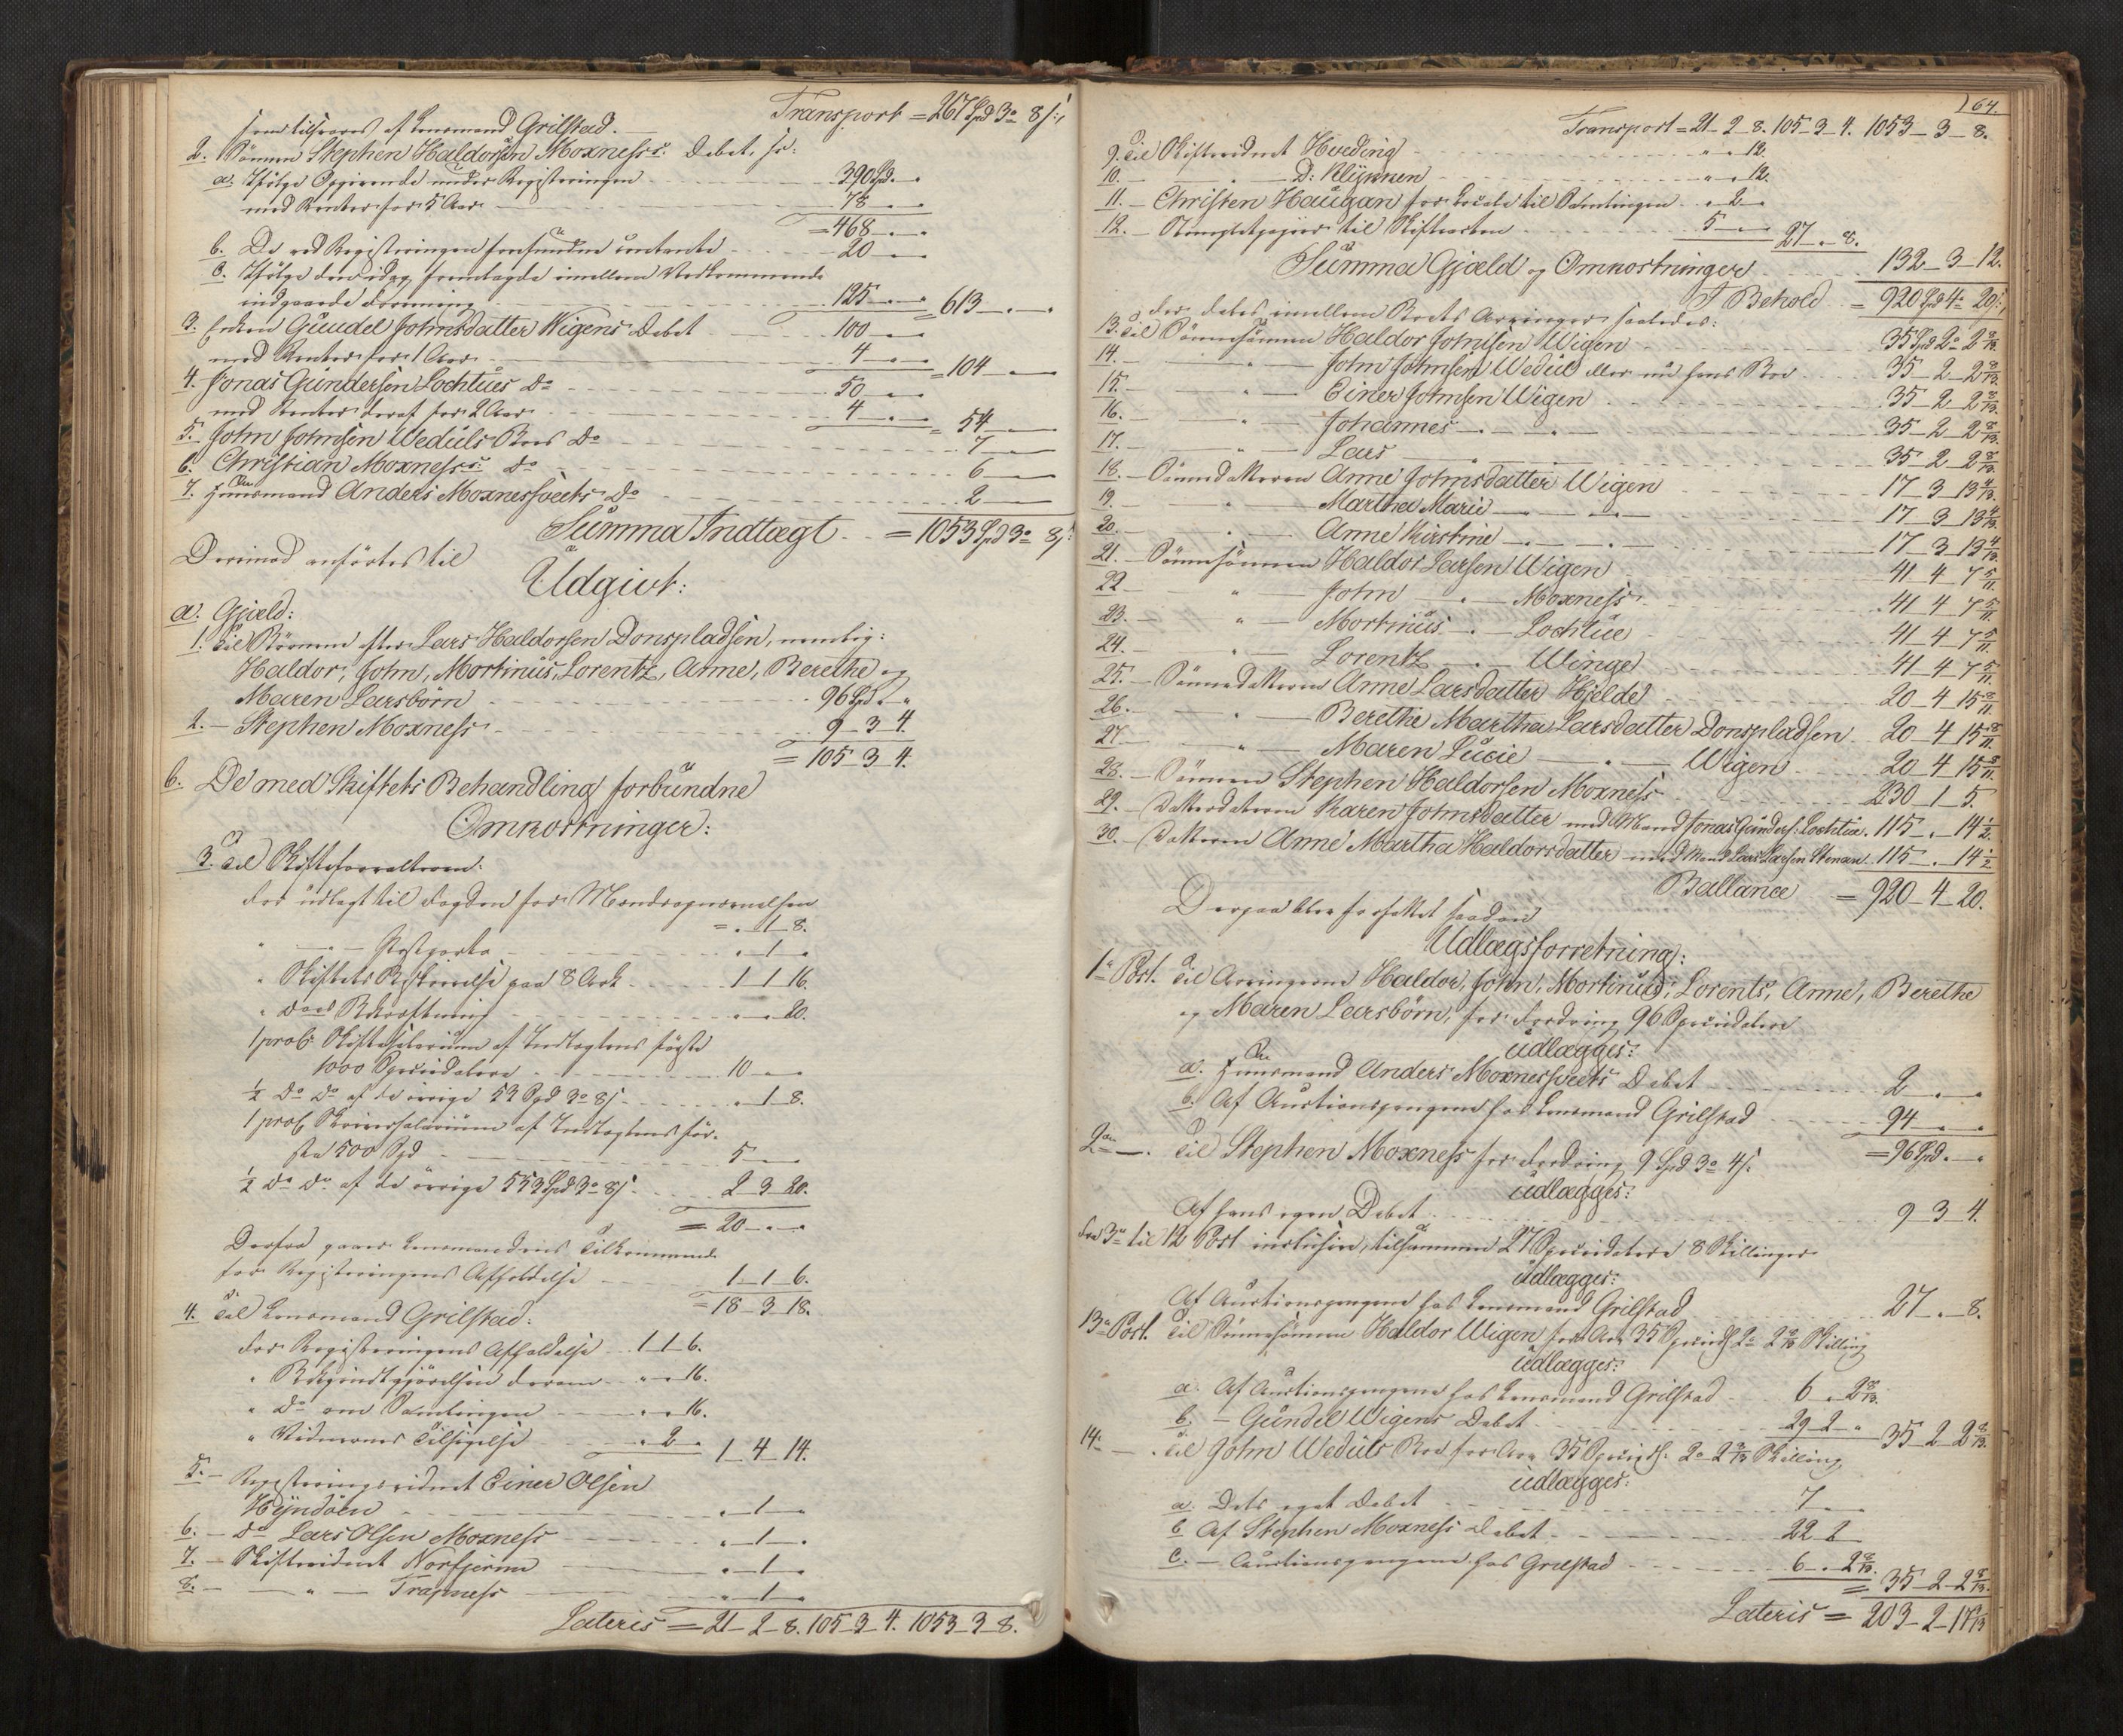 Transport = 267 Spd 3o 8 s:
som tilsvares af Lensmand Grilstad.
2. Sönnen Stephen Haldorsen Moxness's Debet, so:
a. Ifölge Opgivende under Registreringen 390 Spd. „ „
med Renter for 5 Aar 78 „ „
= 468 „ „
b. De ved Registreringen forefundne contante 20 „ „
c. Ifölge den idag fremlagde imellem Vedkommende
indgaaede Forening 125 „ „ = 613 „ „
3. Enken Gundel Johnsdatter Wigens Debet 100 „ „
med Renter for 1 Aar 4 „ „ = 104 „ „
4. Jonas Gundersen Lochtues Do 50 „ „
med Renter deraf for 2 Aar 4 „ „ = 54 „ „
5. John Johnsen Weduls Boes Do 7 „ „
6. Christian Moxness's Do 6 „ „
7. Huusmand Anders Moxnessveets Do 2 „ „
Summa Indtægt = 1053 Spd 3o 8 s:
Derimod anförtes til
Udgivt:
a. Gjæld:
1. Til Börnene efter Lars Haldorsen Donspladsen, nemlig:
Haldor, John, Mortinus, Lorentz, Anne, Berethe og
Maren Larsbörn 96 Spd „ „
2. — Stephen Moxness 9 3 4.
= 105 3 4.
b. De med Skiftets Behandling forbundne
Omkostninger:
3. Til Skifteforvalteren:
For udlagt til Fogden for Mændsopnævnelsen = „ 1 8.
„ — „ — Postporto „ 1 „
„ Skiftets Beskrivelse paa 8 Ark 1 1 16.
„ dens Bekræftning „ „ 20.
1 proC. Skiftesalarium af Indtægtens förste
1000 Speciedalere 10 „ „
½ Do Do af de övrige 53 Spd 3o 8 s „ 1 8.
1 proC. Skriversalarium af Indtægtens för-
ste 500 Spd 5 „ „
½ Do Do af de övrige 553 Spd 3o 8 s 2 3 20.
= 20 „ „
Derfra gaaer Lensmandens Tilkommende
for Registreringens Afholdelse 1 1 6.
= 18 3 18.
4. Til Lensmand Grilstad:
For Registreringens Afholdelse 1 1 6.
„ Bekjendtgjörelsen derom „ „ 16.
„ Do om Samlingen „ „ 16.
„ Vidnernes Tilsigelse „ 2 „ 1 4 14.
5. — Registreringsvidnet Einer Olsen
Hyndöen „ 1 „
6. — Do Lars Olsen Moxness „ 1 „
7. — Skiftevidnet Norfjerm „ 1 „
8. — „ — Trapness „ 1 „
Lateris = 21 2 8. 105 3 4. 1053 3 8.
164.
Transport = 21 2 8. 105 3 4. 1053 3 8.
9. Til Skiftevidnet Hveding „ „ 12.
10. — „ — D: Klykken „ „ 12.
11. — Christen Haugan for Locale til Samlingen „ 2 „
12. — Stemplet papiir til Skifteacten 5 „ „ 27 „ 8.
Summa Gjæld og Omkostninger 132 3 12.
I Behold = 920 Spd 4o 20 s:
der deles imellem Boets Arvinger saaledes:
13. Til Sönnesönnen Haldor Johnsen Wigen 35 Spd 2o 2 8/13.
14. — „ — John Johnsen Wedul eller nu hans Boe 35 2 2 8/13.
15. — „ — Einer Johnsen Wigen 35 2 2 8/13.
16. — „ — Johannes — „ — 35 2 2 8/13.
17. — „ — Lars — „ — 35 2 2 8/13.
18. — Sönnedatteren Anne Johnsdatter Wigen 17 3 13 4/13.
19. — „ — Martha Marie — „ — 17 3 13 4/13.
20. — „ — Anne Kirstine — „ — 17 3 13 4/13.
21. — Sönnesönnen Haldor Larsen Wigen 41 4 7 5/11.
22. — „ — John — „ — Moxness 41 4 7 5/11.
23. — „ — Mortinus — „ — Lochtue 41 4 7 5/11.
24. — „ — Lorentz — „ — Winge 41 4 7 5/11.
25. — Sönnedatteren Anne Larsdatter Hjelde 20 4 15 8/11.
26. — „ — Berethe Martha Larsdatter Donspladsen 20 4 15 8/11.
27. — „ — Maren Lucie — „ — Wigen 20 4 15 8/11.
28. — Sönnen Stephen Haldorsen Moxness 230 1 5.
29. — Datterdatteren Karen Johnsdatter med Mand Jonas Gunders: Lochtue 115 „ 14 ½
30. — Datteren Anne Martha Haldorsdatter med Mand Lars Larsen Stenan 115 „ 14 ½
Ballance = 920 4 20.
Derpaa blev forfattet saadan
Udlægsforretning:
1te Post. Til Arvingerne Haldor, John, Mortinus, Lorents, Anne, Berethe
og Maren Larsbörn, for Fordring 96 Speciedalere
udlægges:
a. Huusmand Anders Moxnessveets Debet 2 „ „
b. Af Auctionspengene hos Lensmand Grilstad 94 „ „
= 96 Spd „ „
2den — . Til Stephen Moxness for Fordring 9 Spd 3o 4 s.
udlægges:
Af hans egen Debet 9 3 4.
Fra 3die til 12 Post inclusive, tilsammen 27 Speciedalere 8 Skillinger
udlægges:
Af Auctionspengene hos Lensmand Grilstad 27 „ 8.
13de Post. Til Sönnesönnen Haldor Wigen for Arv 35 Speciedl 2o 2 8/13 Skilling
udlægges:
a. Af Auctionspengene hos Lensmand Grilstad 6 „ 2 8/13.
b. — Gundel Wigens Debet 29 2 „ 35 2 2 8/13.
14de — . Til John Weduls Boe for Arv 35 Speciedl. 2o 2 8/13 Skilling
udlægges:
a. Dets eget Debet 7 „ „
b Af Stephen Moxness Debet 22 2 „
c. — Auctionspengene hos Grilstad 6 „ 2 8/13.
= 35 2 2 8/13.
Lateris = 203 2 17 3/13